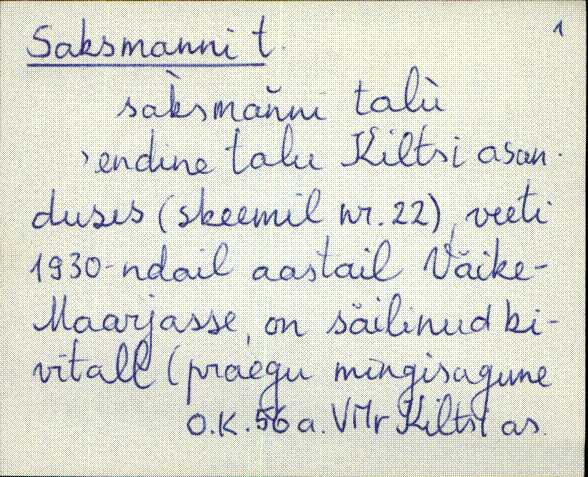 1
Saksmanni t.
sàksmańni talù
'endine talu Kiltsi asun-
duses (skeemil nr. 22), veeti
1930-ndail aastail Väike-
Maarjasse, on säilinud ki-
vitall (praegu mingisugune
O.K. 56 a. VMr Kiltsi as.